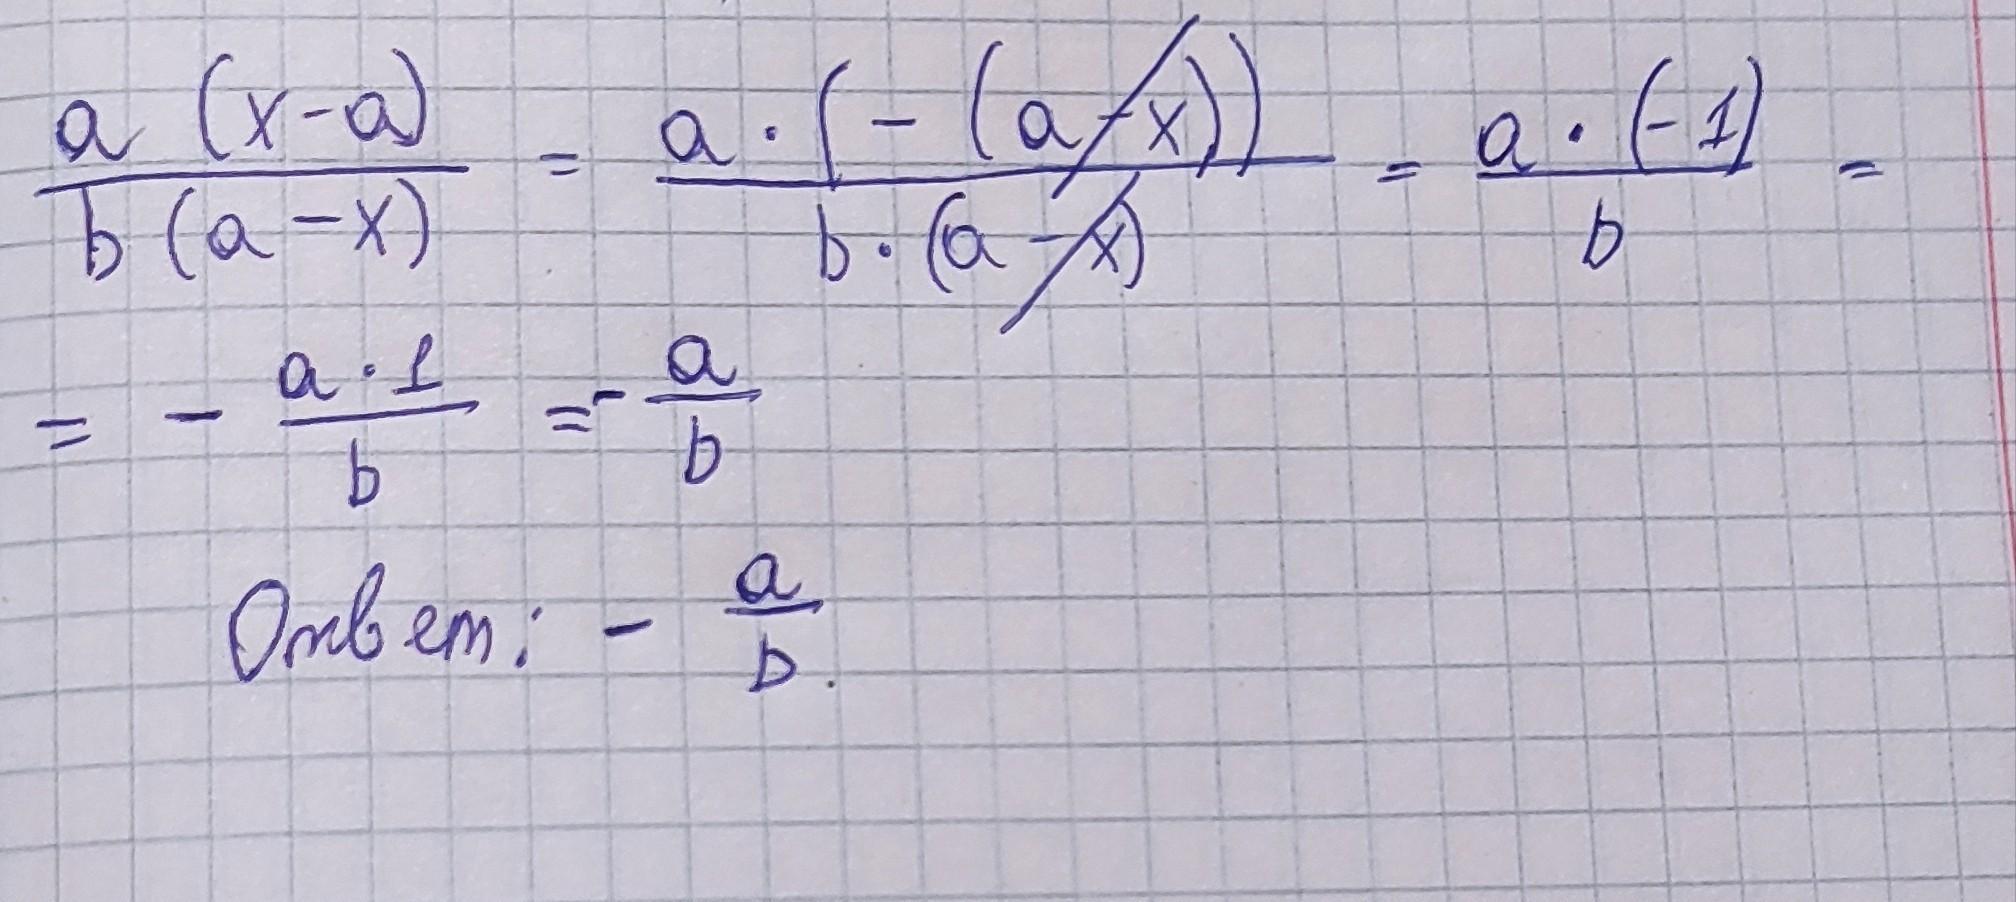 a (x-a) / b (a-x) = a · (-(a-x)) / b · (a-x) = a · (-1) / b =
= - a · 1 / b = - a / b
Ответ: - a / b.